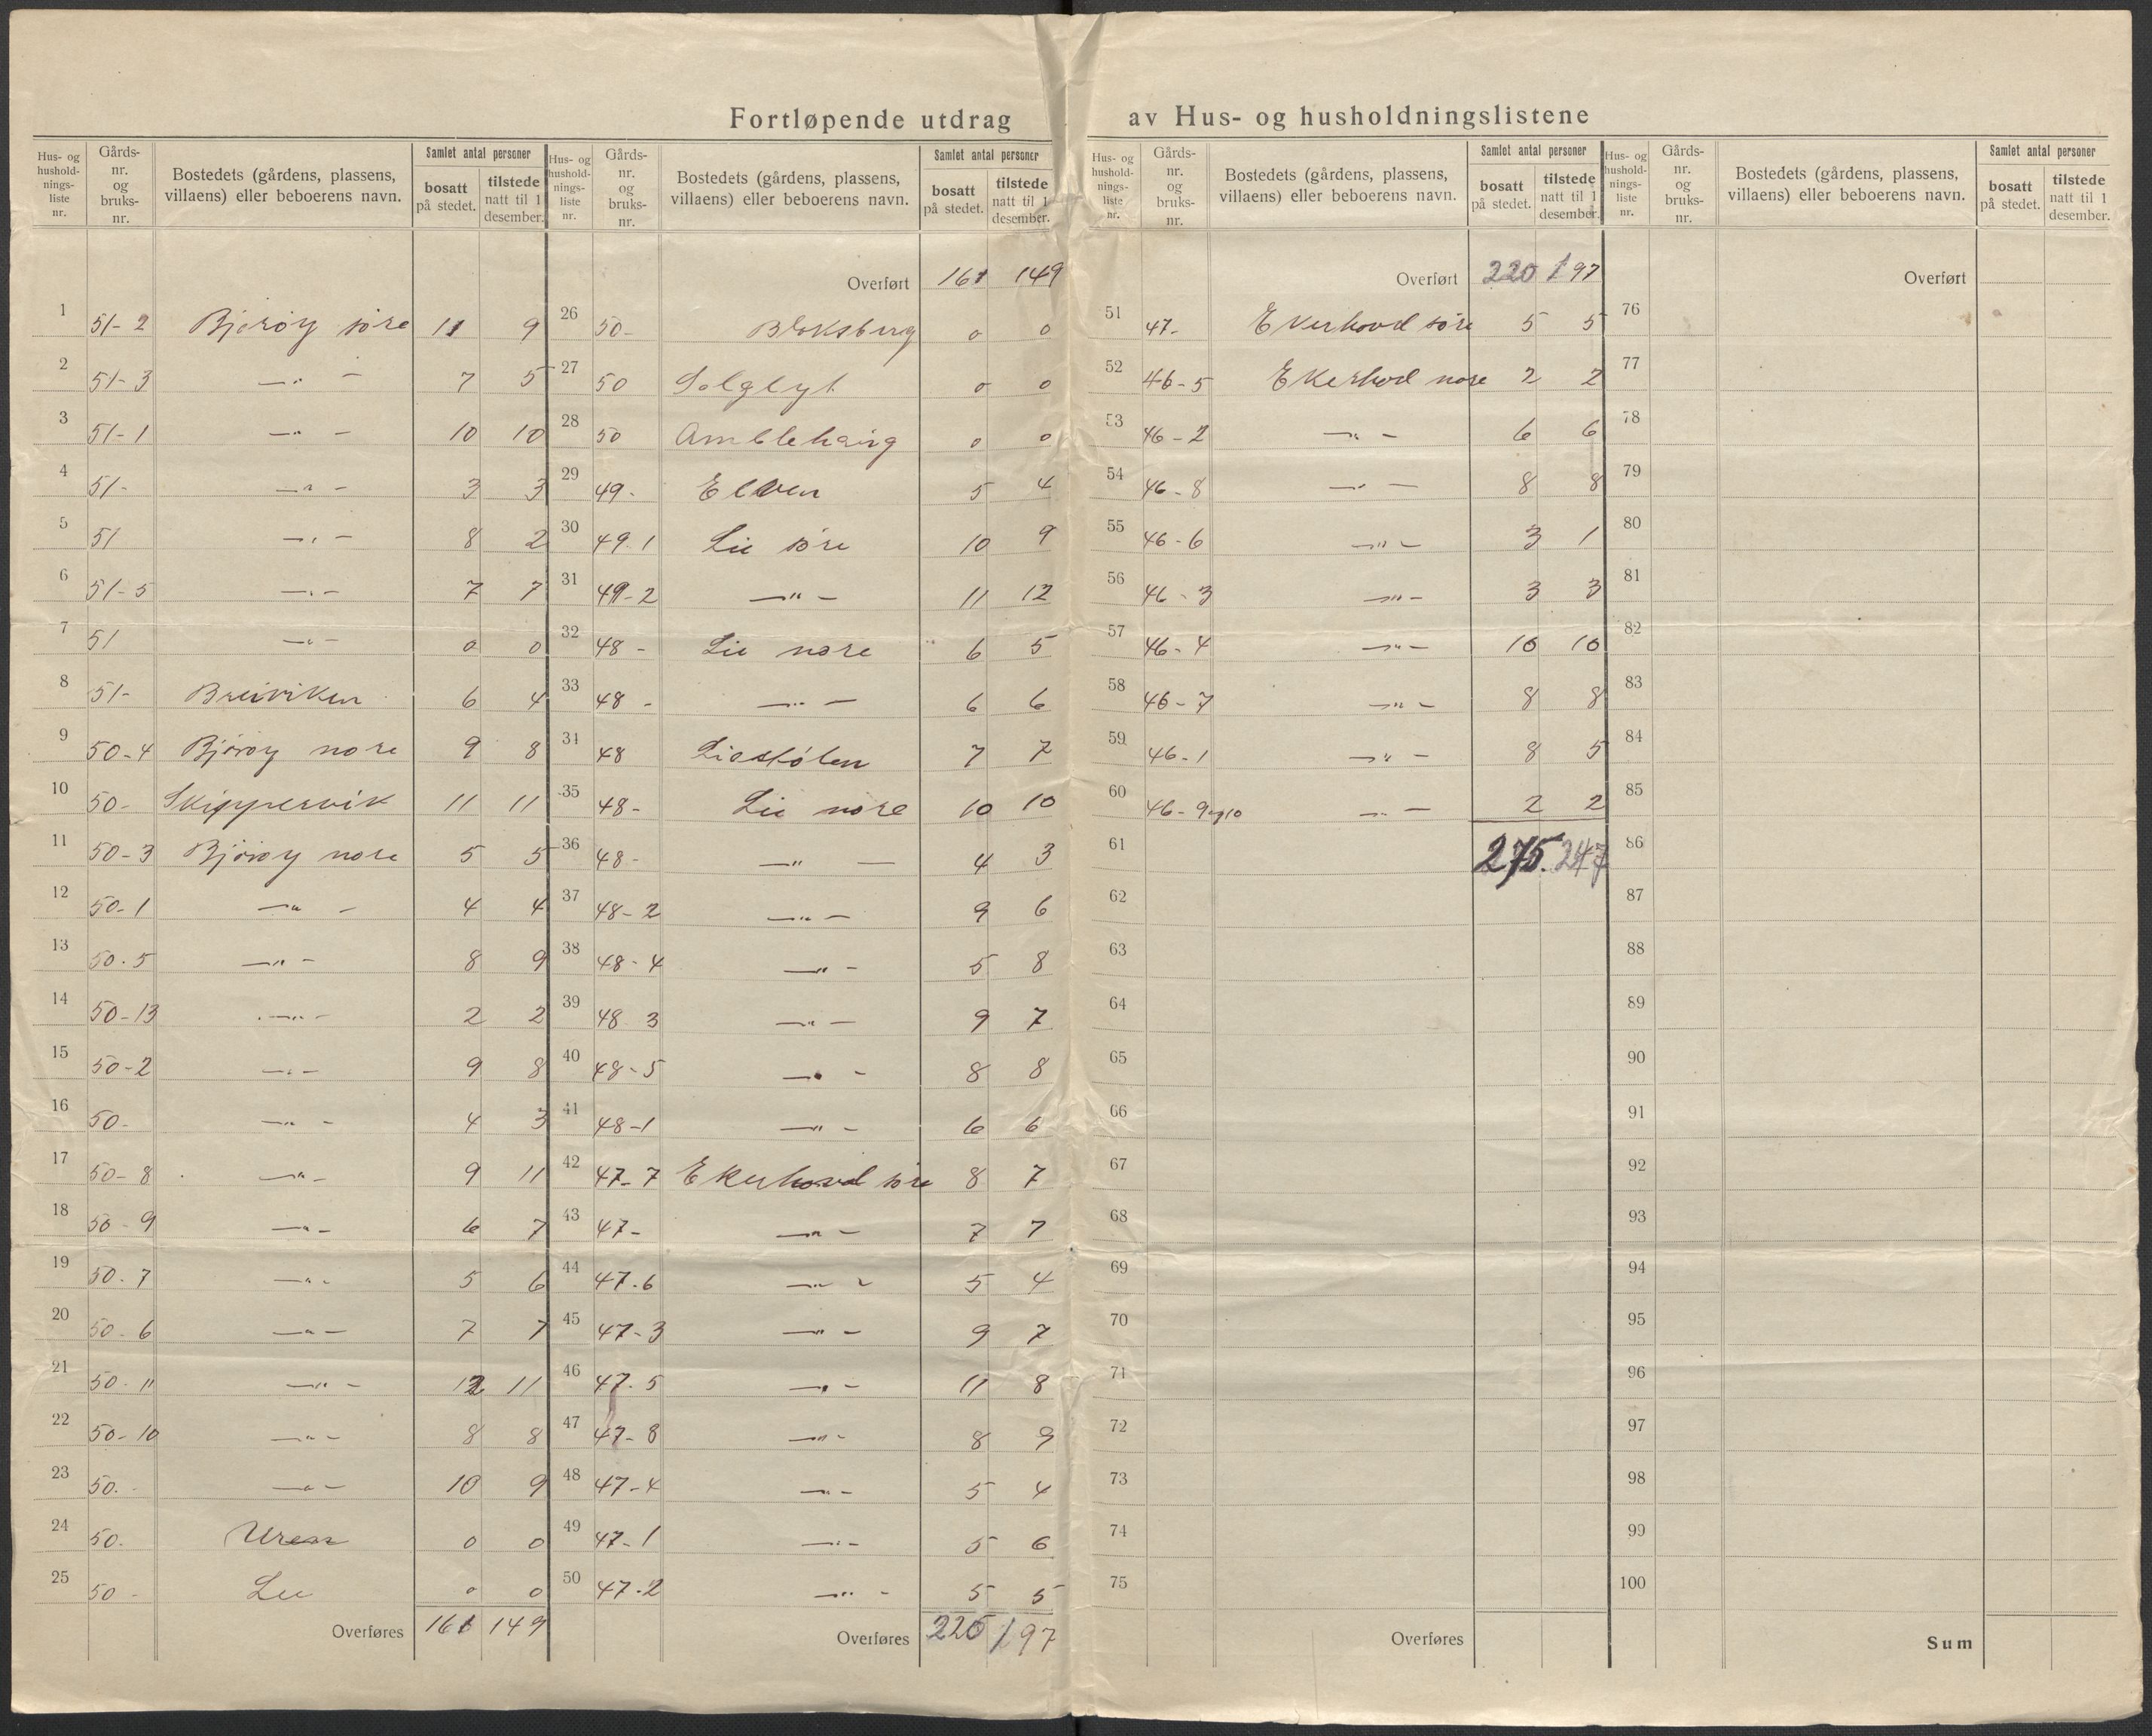 Fortløpende utdrag av Hus- og husholdningslistene
Hus- og husholdnings-liste nr. | Gårds-nr. og bruks-nr. | Bostedets (gårdens, plassens, villaens) eller beboerens navn. | Samlet antal personer | bosatt på stedet. | tilstede natt til 1 desember.
1 51-2 Bjorøy søre 11 9
2 51-3 —„— 7 5
3 51-1 —„— 10 10
4 51- —„— 3 3
5 51 —„— 8 2
6 51-5 —„— 7 7
7 51 —„— 0 0
8 51- Breiviken 6 4
9 50-4 Bjørøy nore 9 8
10 50- Skippervik 11 11
11 50-3 Bjørøy nore 5 5
12 50-1 —„— 4 4
13 50.5 —„— 8 9
14 50-13 —„— 2 2
15 50-2 —„— 9 8
16 50- —„— 4 3
17 50-8 —„— 9 11
18 50-9 —„— 6 7
19 50.7 —„— 5 6
20 50-6 —„— 7 7
21 50-11 —„— 12 11
22 50-10 —„— 8 8
23 50.- —„— 10 9
24 50. Uren 0 0
25 50- Lie 0 0
Overføres 161 149
Hus- og husholdnings-liste nr. | Gårds-nr. og bruks-nr. | Bostedets (gårdens, plassens, villaens) eller beboerens navn. | Samlet antal personer | bosatt på stedet. | tilstede natt til 1 desember.
Overført 161 149
26 50- Bloksberg 0 0
27 50 Solglyt 0 0
28 50 0 0
29 49- Elven 5 4
30 49.1 Lie søre 10 9
31 49-2 —„— 11 12
32 48- Lie nore 6 5
33 48- —„— 6 6
34 48 Liastølen 7 7
35 48- Lie nore 10 10
36 48- —„— 4 3
37 48-2 —„— 9 6
38 48-4 —„— 5 8
39 48 3 —„— 9 7
40 48-5 —„— 8 8
41 48-1 —„— 6 6
42 47-7 Ekerhovd søre 8 7
43 47- —„— 7 7
44 47.6 —„— 5 4
45 47-3 —„— 9 7
46 47.5 —„— 11 8
47 47-8 —„— 8 9
48 47-4 —„— 5 4
49 47-1 —„— 5 6
50 47-2 —„— 5 5
Overføres 220 197
Hus- og husholdnings-liste nr. | Gårds-nr. og bruks-nr. | Bostedets (gårdens, plassens, villaens) eller beboerens navn. | Samlet antal personer | bosatt på stedet. | tilstede natt til 1 desember.
Overført 220 197
51 47- Ekerhovd søre 5 5
52 46-5 Ekerhod nore 2 2
53 46-2 —„— 6 6
54 46-8 —„— 8 8
55 46-6 —„— 3 1
56 46-3 —„— 3 3
57 46-4 —„— 10 10
58 46-7 —„— 8 8
59 46-1 —„— 8 5
60 46-9og10 —„— 2 2
61 275. 247
62
63
64
65
66
67
68
69
70
71
72
73
74
75
Overføres
Hus- og husholdnings-liste nr. | Gårds-nr. og bruks-nr. | Bostedets (gårdens, plassens, villaens) eller beboerens navn. | Samlet antal personer | bosatt på stedet. | tilstede natt til 1 desember.
Overført
76
77
78
79
80
81
82
83
84
85
86
87
88
89
90
91
92
93
94
95
96
97
98
99
100
Sum